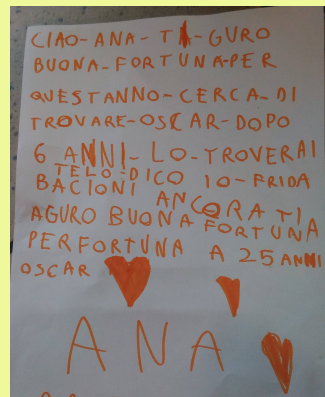 CIAO-ANA-TI-GURO
BUONA-FORTUNA-PER
QUESTANNO-CERCA-DI
TROVARE-OSCAR-DOPO
6 ANNI-LO-TROVERAI
TELO-DICO IO-FRIDA
BACIONI ANCORA TI
AGURO BUONA FORTUNA
PERFORTUNA A 25 ANNI
OSCAR
ANA